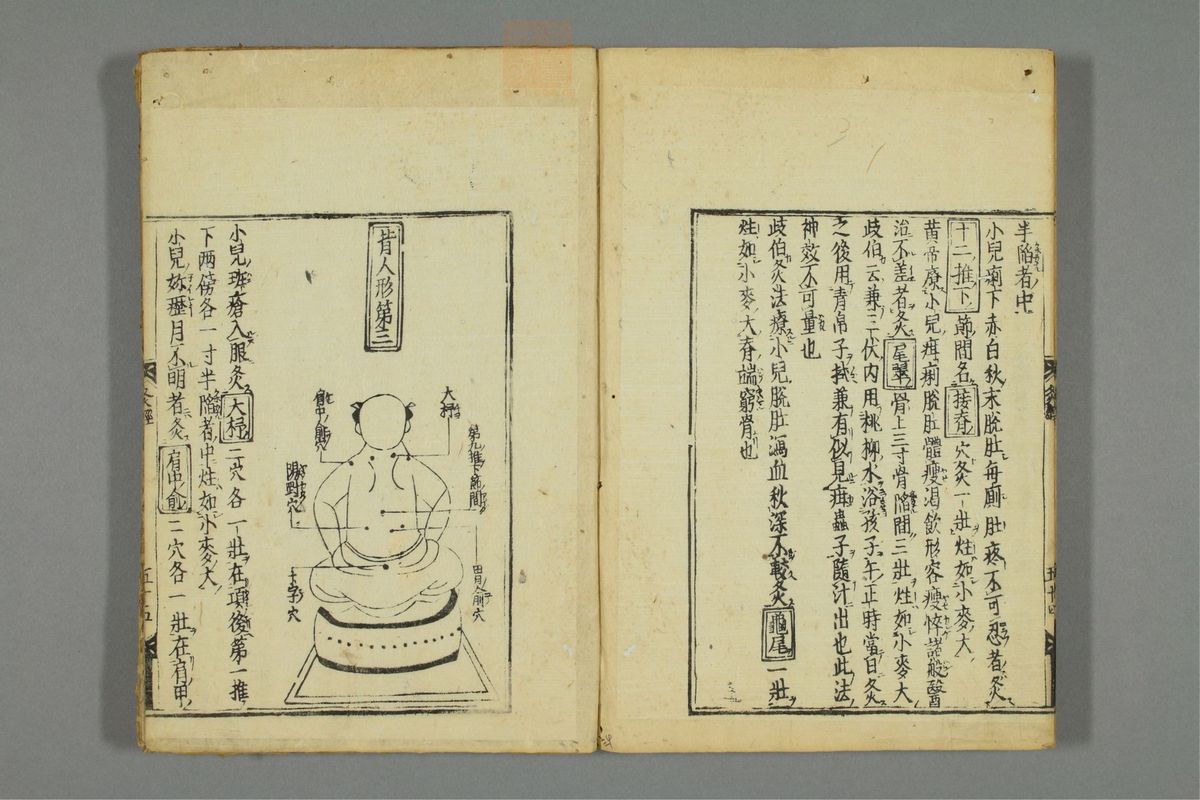 半陷者中
小兒痢下赤白秋末脫肛每廁肚疼不可忍者灸
十二推下節間名接脊穴灸一壯炷如小麥大
黃帝療小兒疳痢脫肛體瘦渴飲形容瘦悴諸般醫
治不差者灸尾翠骨上三寸骨陷間三壯炷如小麥大
歧伯云兼三伏內用桃柳水浴孩子午正時當日灸
之後用青帛子拭兼有似見疳蟲子隨汁出也此法
神效不可量也
歧伯灸法療小兒脫肛瀉血秋深不較灸龜尾一壯
炷如小麥大脊端窮骨也
灸經
背人形第三
大杼
第九推下節間
肩中俞穴
胃俞穴
十字穴
小兒斑瘡入眼灸大杼二穴各一壯在項後第一推
下兩傍各一寸半陷者中炷如小麥大
小兒
月不明者灸肩中俞二穴各一壯在肩甲
灸經
五十五